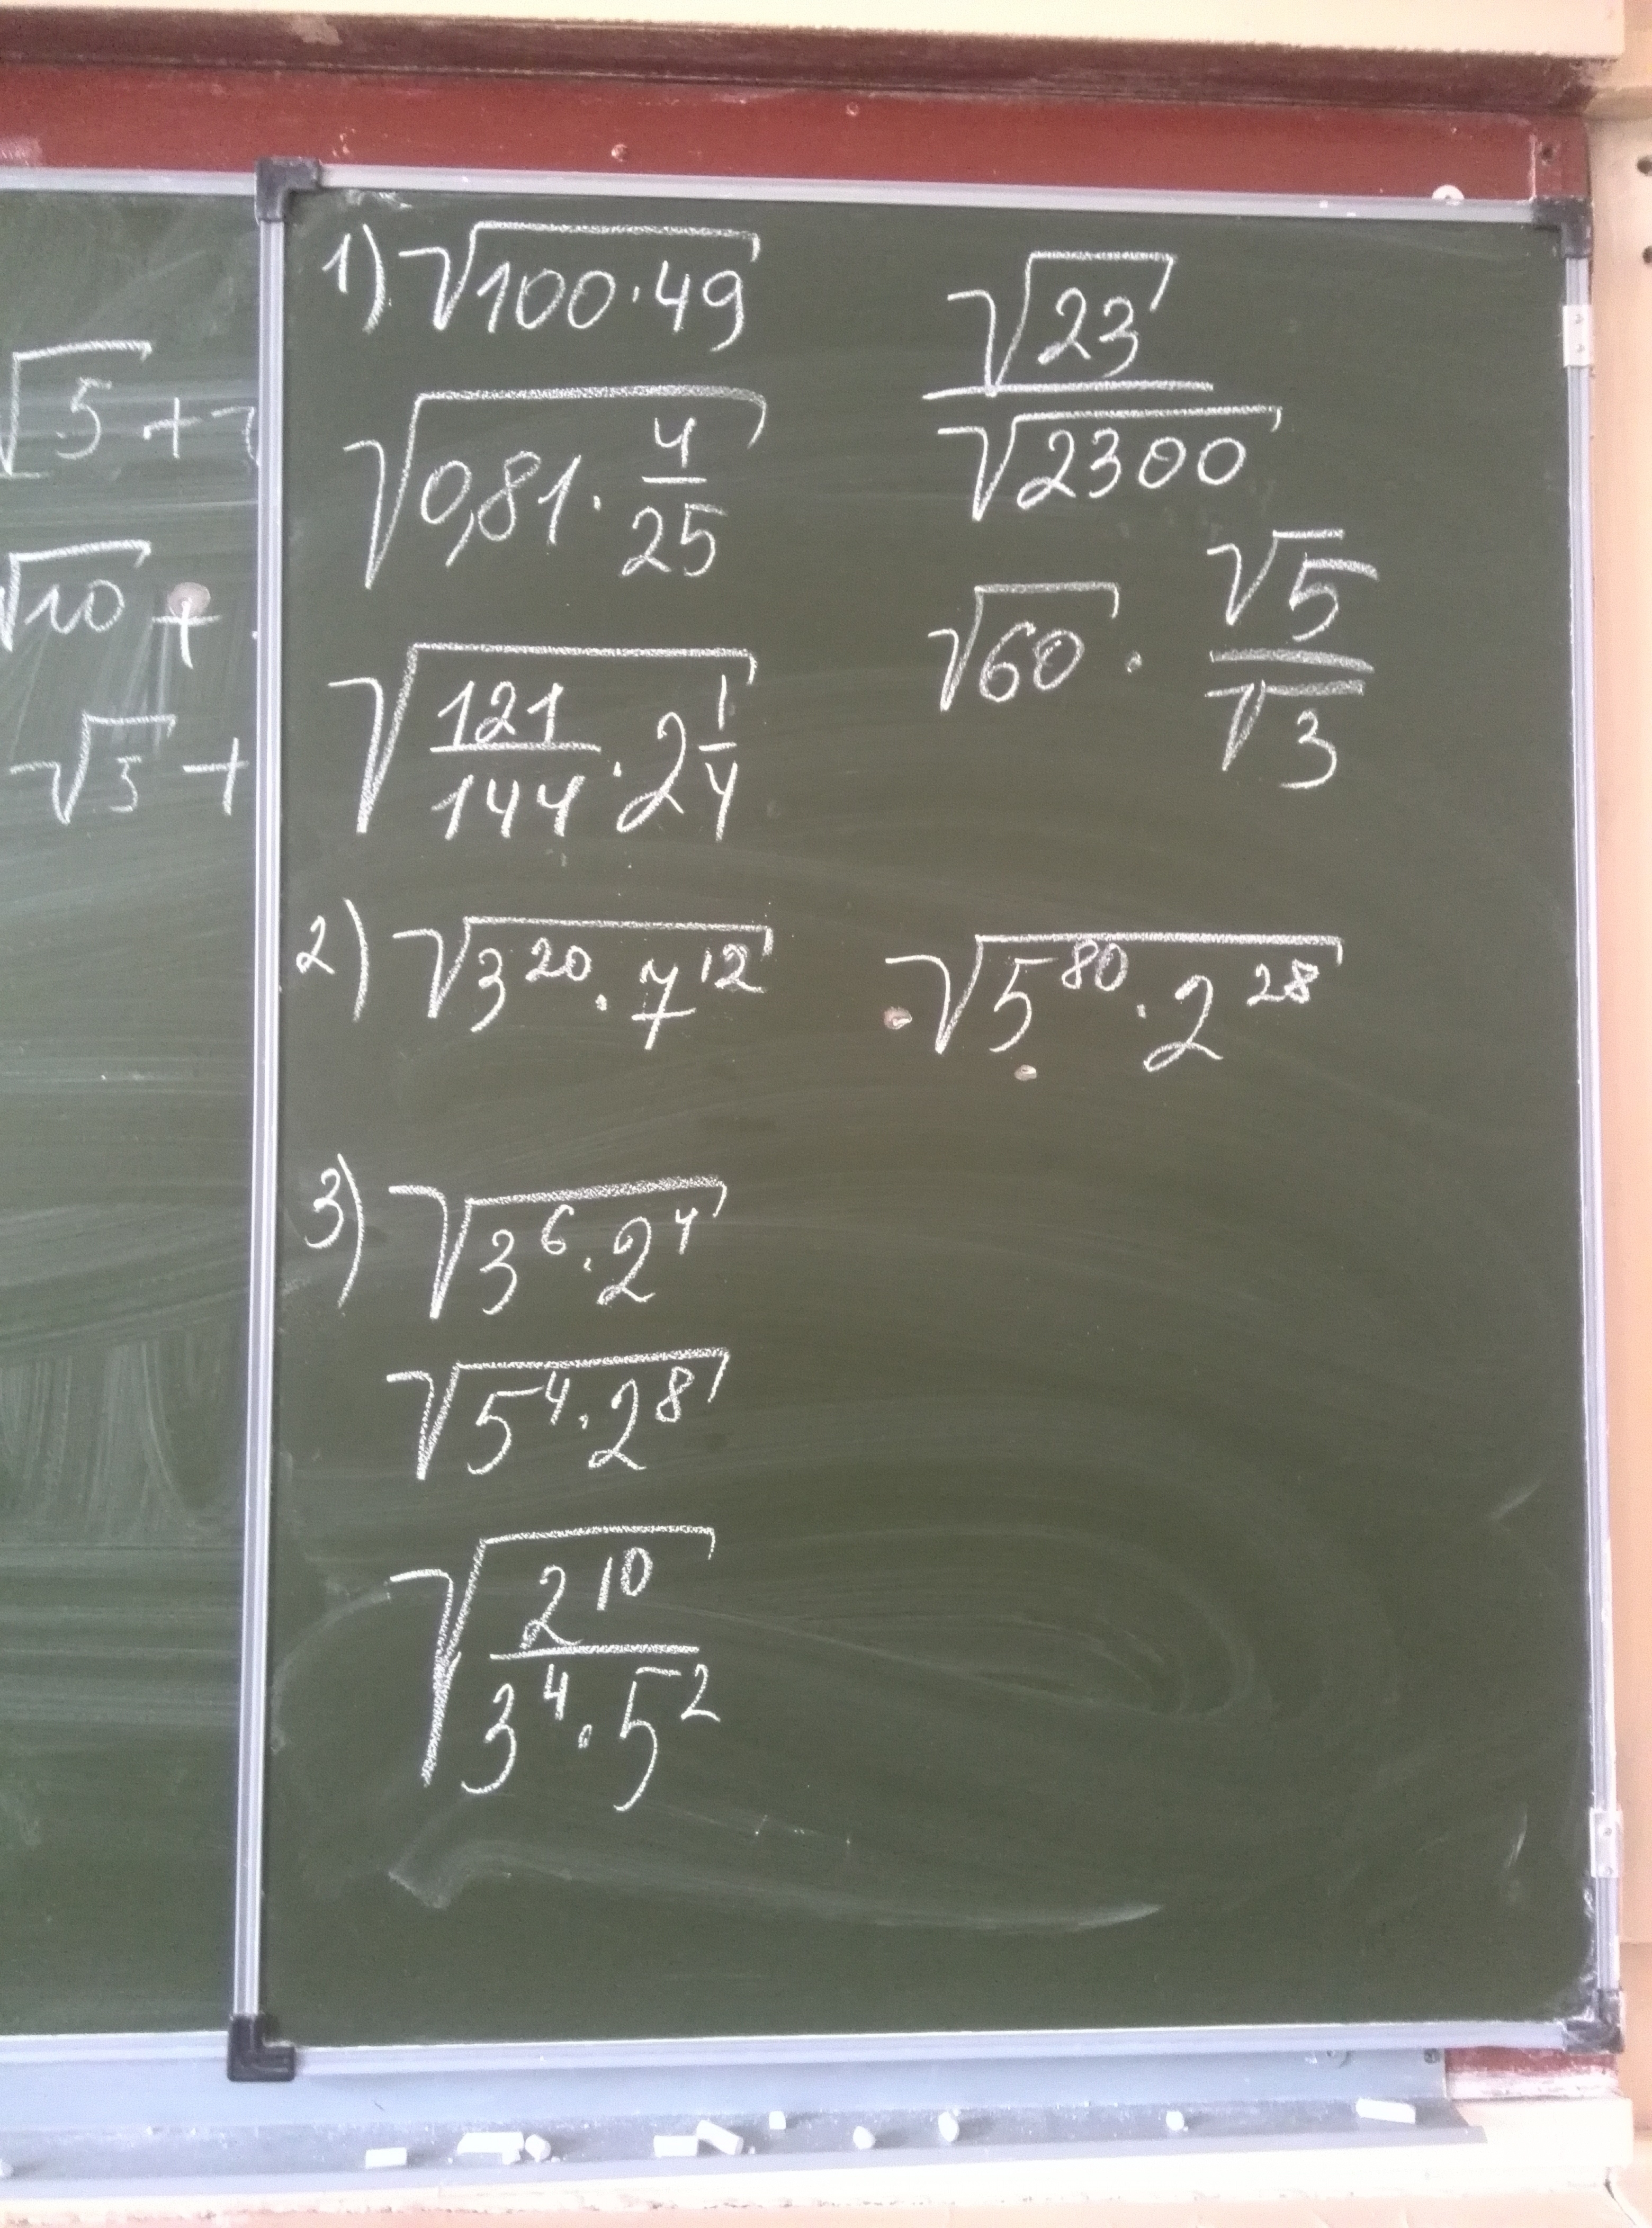 √5 +
√10 +
√5 +
1) √(100·49)
√(0,81 · 4/25)
√(121/144 · 2 1/4)
√23/√2300
√60 · √5/√3
2) √(3^20 · 7^12) √(5^80 · 2^28)
3) √(3^6 · 2^4)
√(5^4 · 2^8)
√(2^10/(3^4 · 5^2))